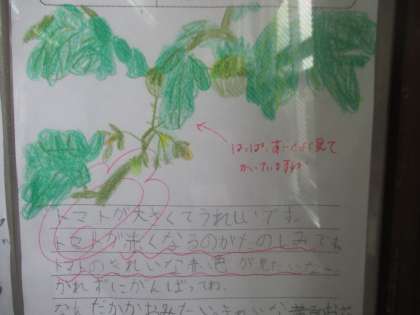 はっぱ、すごくよく見て
かいていますね
トマトが大きくてうれしいです。
トマトが赤くなるのがたのしみです
トマトのきれいな赤色が見たいな。
かれずにがんばってね。
なんだかかおみたい きれいな